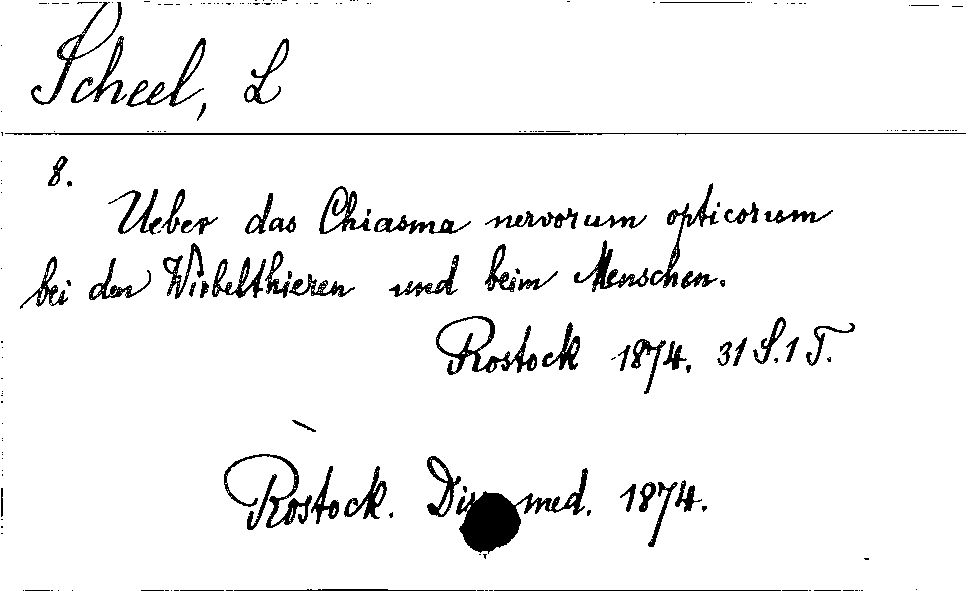 Scheel, L
8.
Ueber das Chiasma nervorum opticorum
bei den Wirbelthieren und beim Menschen.
Rostock 1874. 31 S. 1 T.
Rostock. Diss. med. 1874.